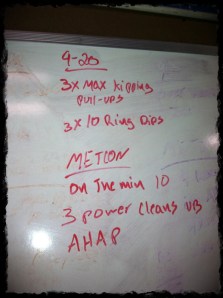 9-20
3x max kipping
pull-ups
3x10 Ring Dips
METCON
on The min 10
3 power cleans UB
AHAP